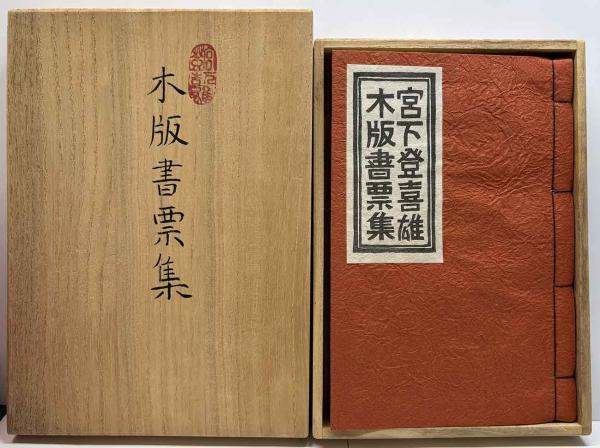 木版書票集
宮下登喜雄
木版書票集